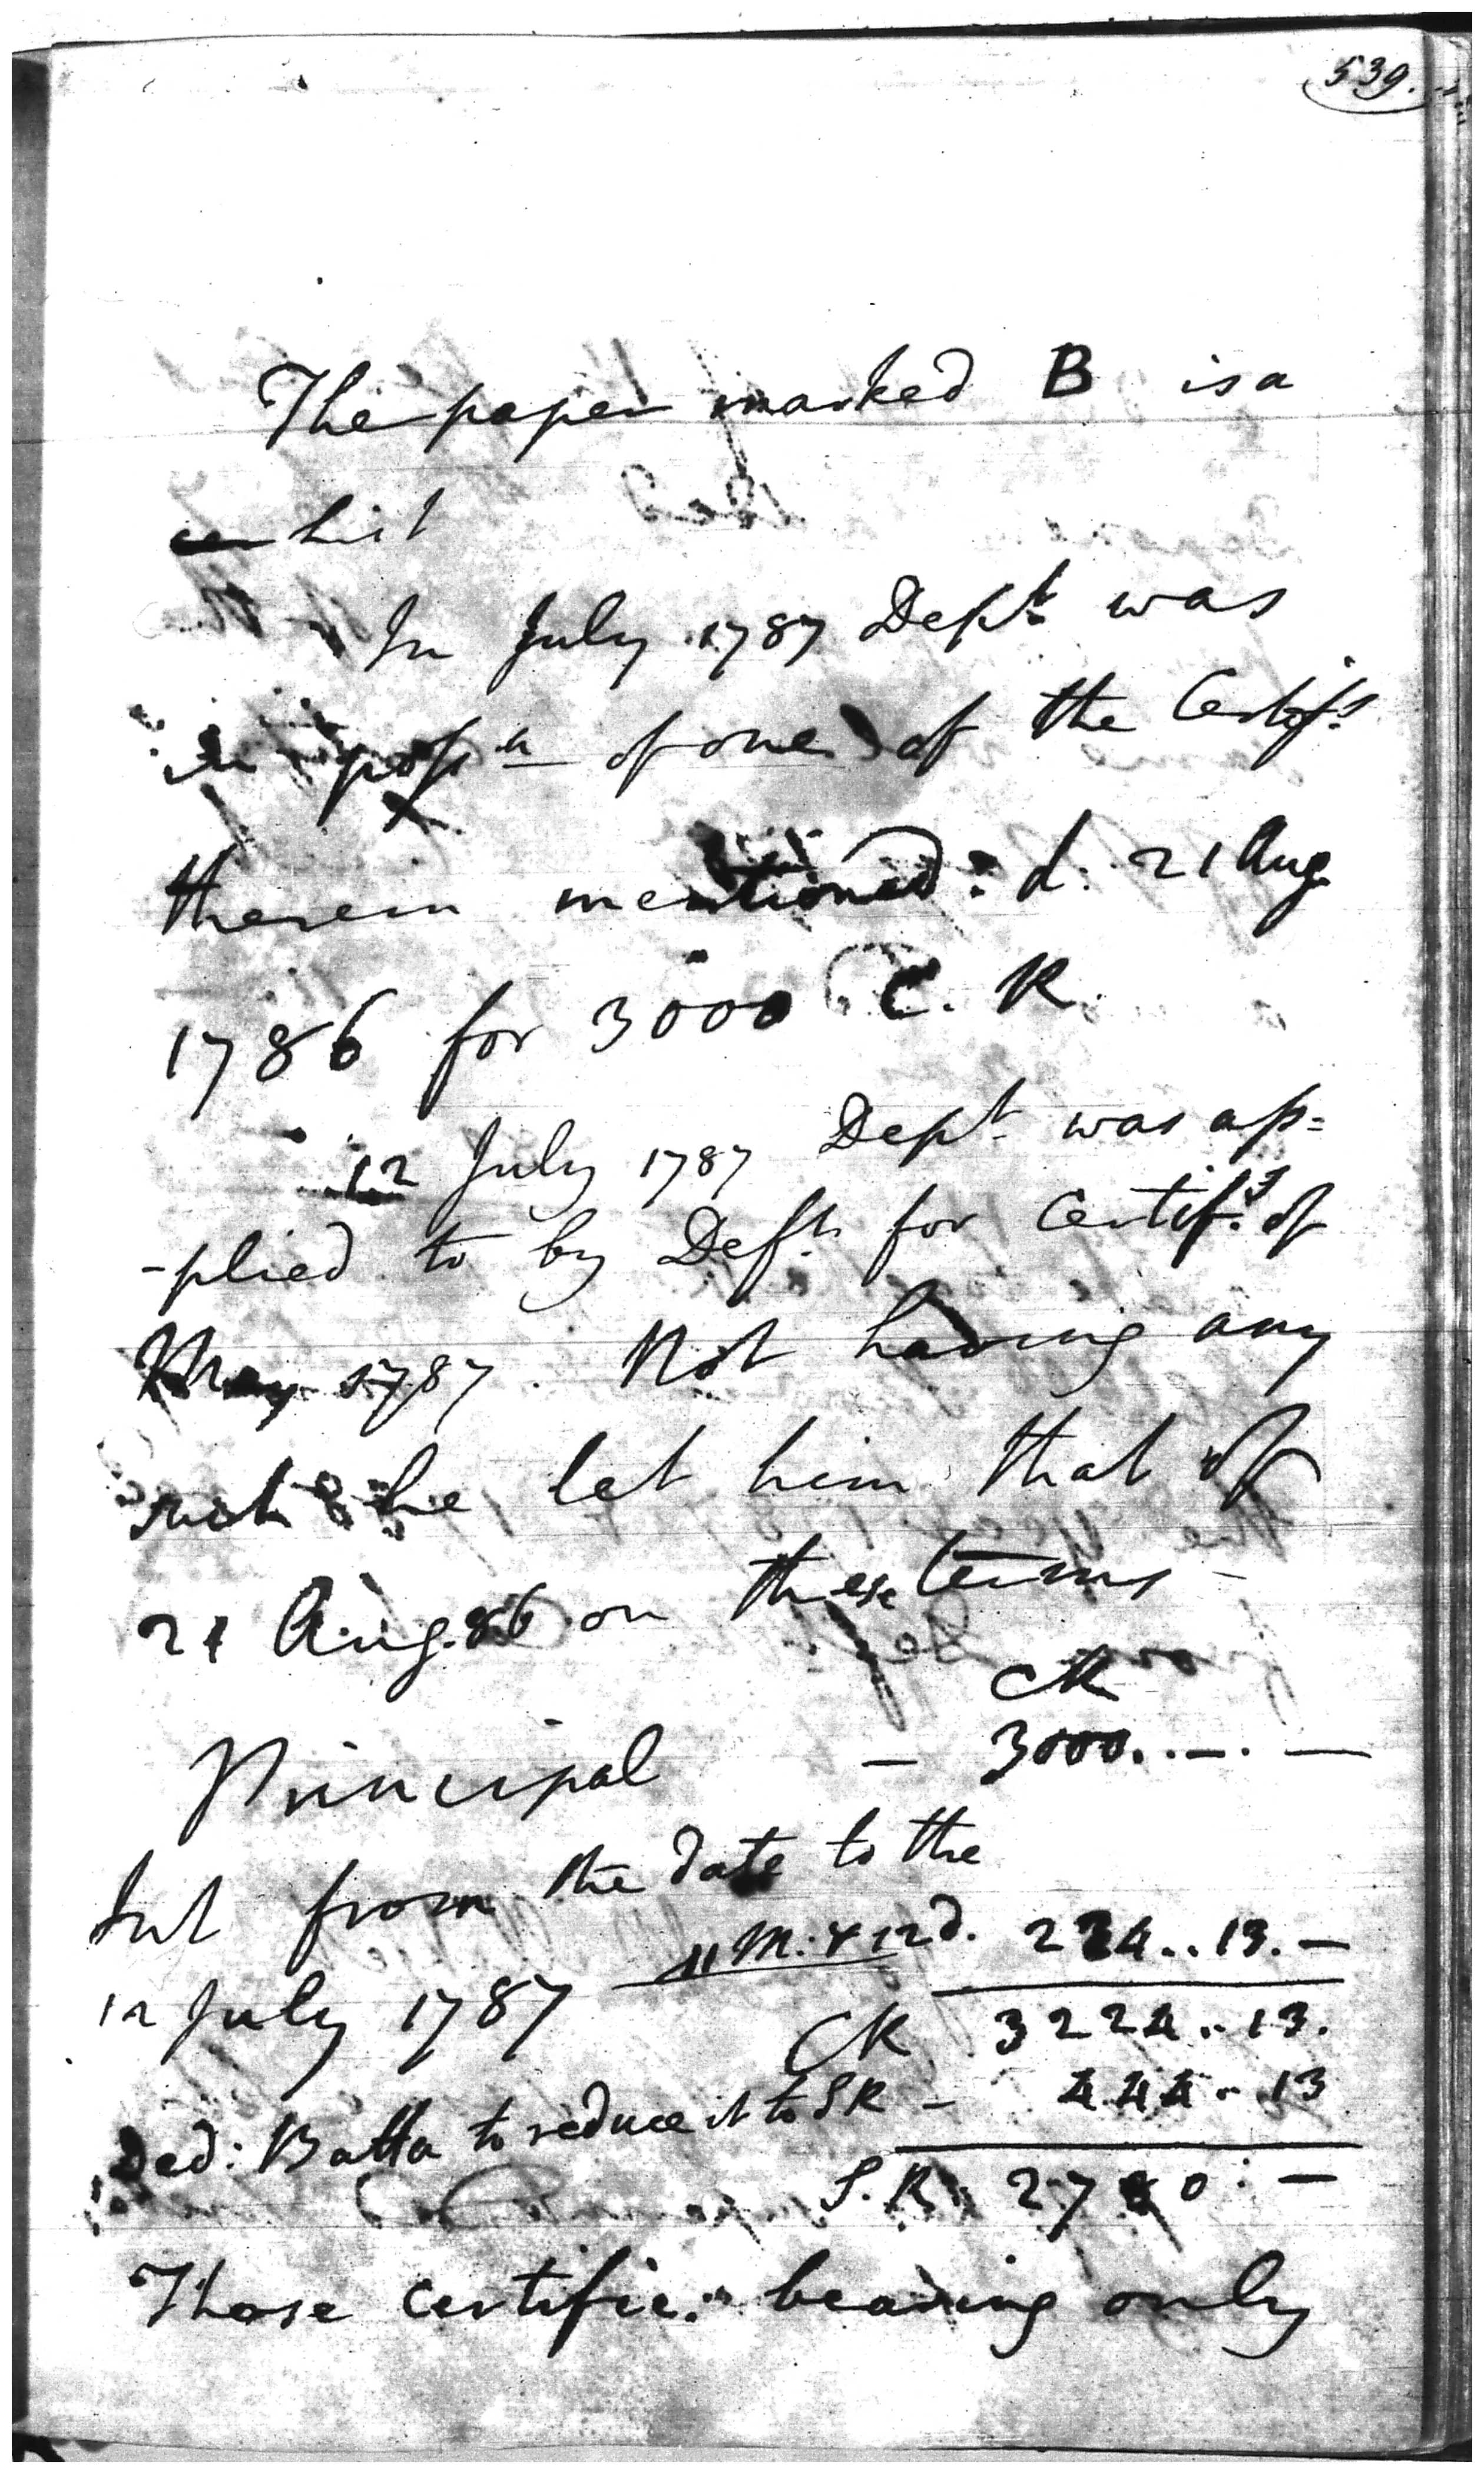 539.
The paper marked B is a
list
In July 1787 Dept. was
in possn of one of the Certifs.
therein mentioned: d. 21 Aug
1786 for 3000 C. R.
12 July 1787 Dept. was ap=
-plied to by Deft. for Certifs. of
May 1787. Not having any
such he let him that of
21 Aug. 86 on these terms -
CR
Principal - 3000..-.-
Int from the date to the
12 July 1787 11 M: & 12 d. 224..13.-
CR 3224..13.
Ded: Batta to reduce it to SR - 444..13
S.R. 2780:-
These certific: bearing only